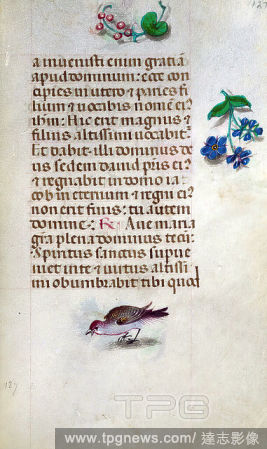 127
a invenisti enim gratiā
apud dominum: ecce con
cipies in utero & paries fi
lium & vocabis nomē ei9
ihm: Hic erit magnus &
filius altissimi vocabit~
Et dabit illi dominus de
us sedem david pris ei9
& regnabit in domo ia
cob in eternum & regni ei9
non erit finis: tu autem
domine: R Ave maria
gra plena dominus tecū:
Spiritus sanctus supve
niet in te & virtus altissi
mi obumbrabit tibi quod
127
TPG
www.tpgnews.com / 達志影像